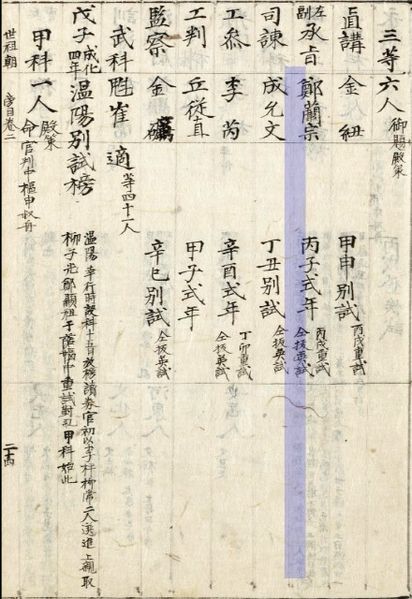 三等六人 御題殿策
直講 金紐 甲申別試 丙戌重試
左副承旨 鄭蘭宗 丙子式年 丙戌重試 仝拔英試
司諫 成允文 丁丑別試 仝拔英試
工參 李芮 辛酉式年 丁卯重試 仝拔英試
工判 丘從直 甲子式年 仝拔英試
監察 金礪 辛巳別試 仝拔英試
武科魁崔適 等四十一人
戊子 成化四年 溫陽別試榜
溫陽幸行時設科十五日放榜讀券官初以李枰柳常二人選進上親取
柳子光鄭顯祖于落幅中重試對
甲科一人 殿策 命官判中樞申叔舟
世祖朝 榜目卷二 二十四